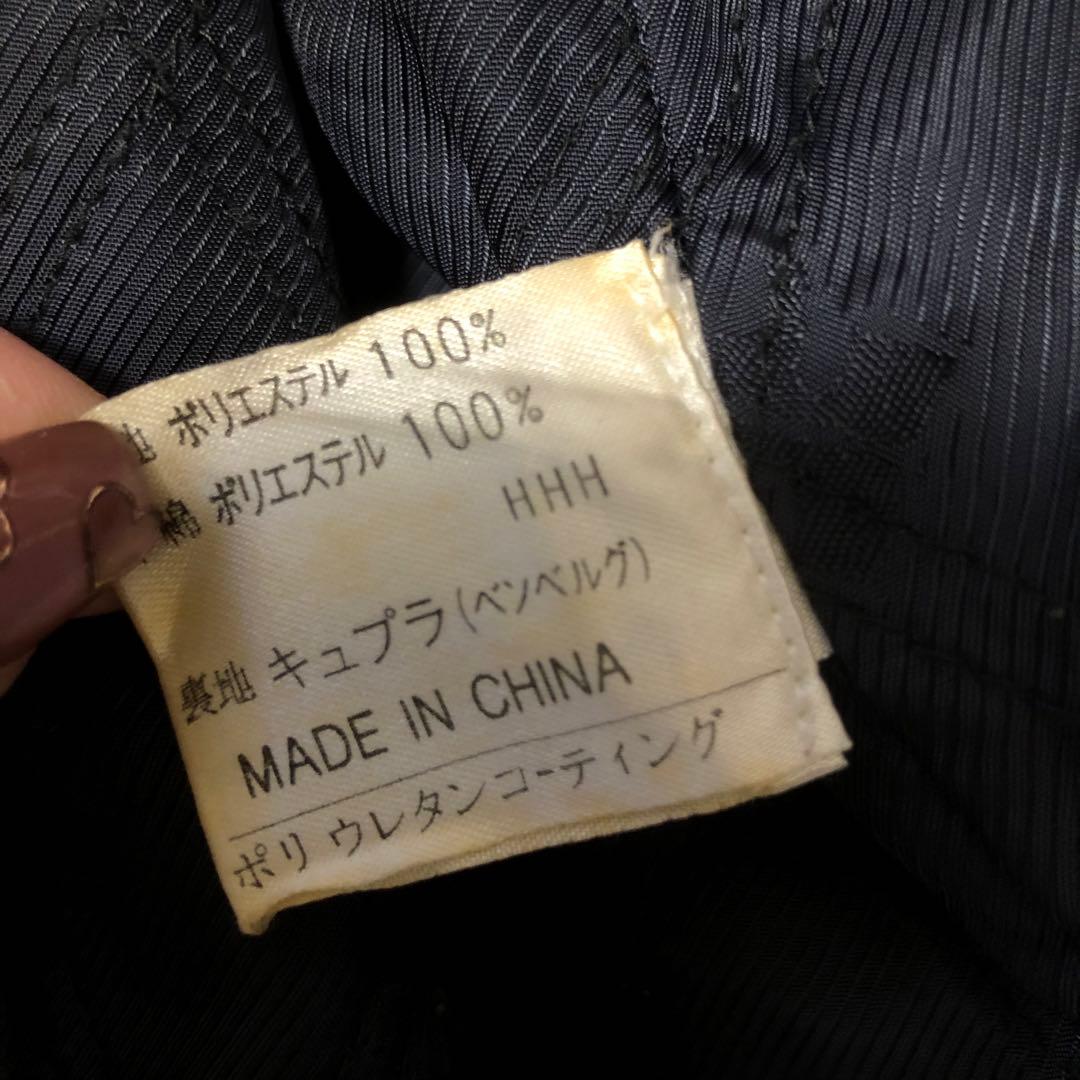 地 ポリエステル 100%
綿 ポリエステル 100%
HHH
裏地 キュプラ(ベンベルグ)
MADE IN CHINA
ポリウレタンコーティング